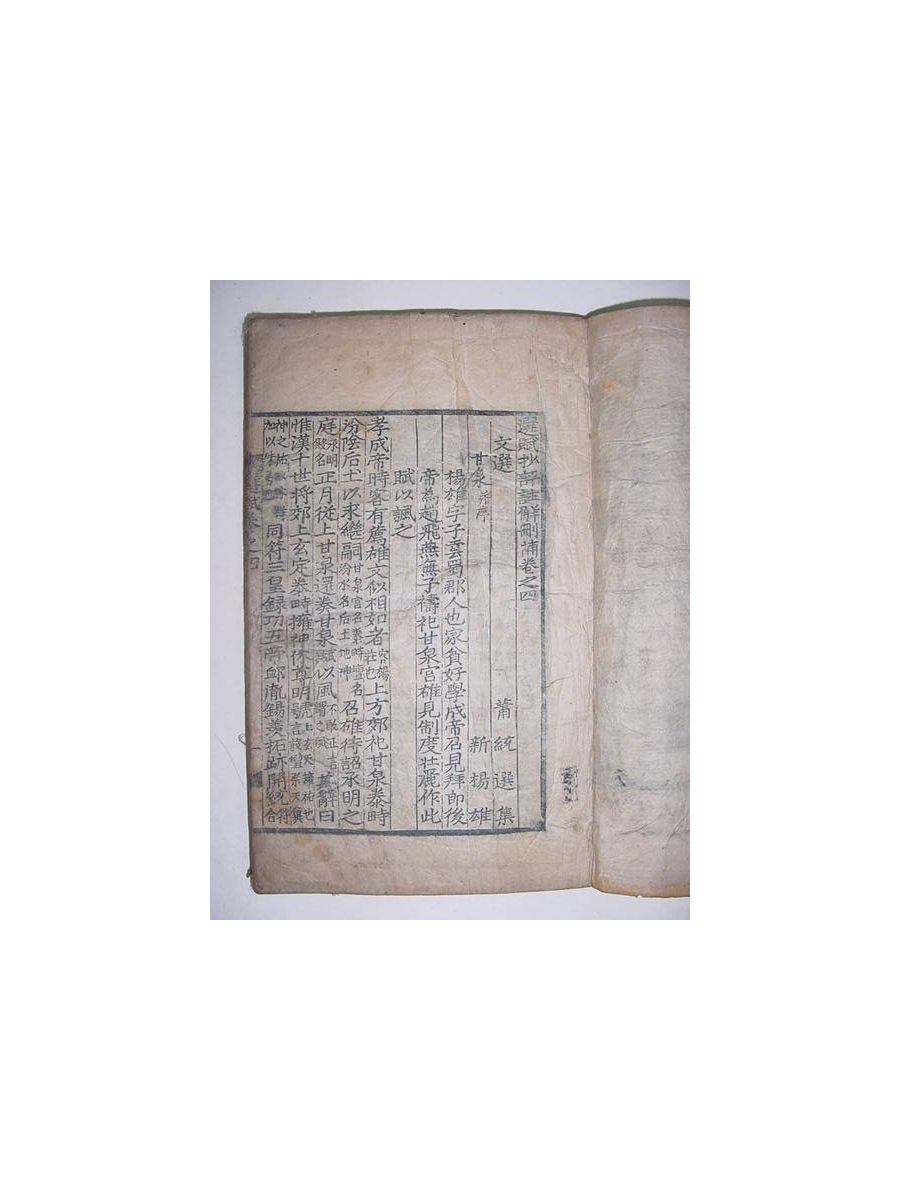 選賦抄評註解刪補卷之四
文選 蕭統選集
甘泉 并序 新楊雄
楊雄字子雲蜀郡人也家貧好學成帝召見拜郎後
帝為趙飛燕無子禱祀甘泉宮雄見制度壯麗作此
賦以諷之
孝成帝時客有薦雄文似相如者 客楊莊也 上方郊祀甘泉泰畤
汾陰后土以求繼嗣 甘泉宮名泰畤壇名汾水名后土地神 召雄待詔承明之
庭 承明殿名 正月從上甘泉還奏甘泉賦以風 不敢正言謂之風 其辭曰
惟漢十世將郊上玄定泰畤擁神休尊明號
同符三皇錄功五帝卹胤錫羨拓跡開統